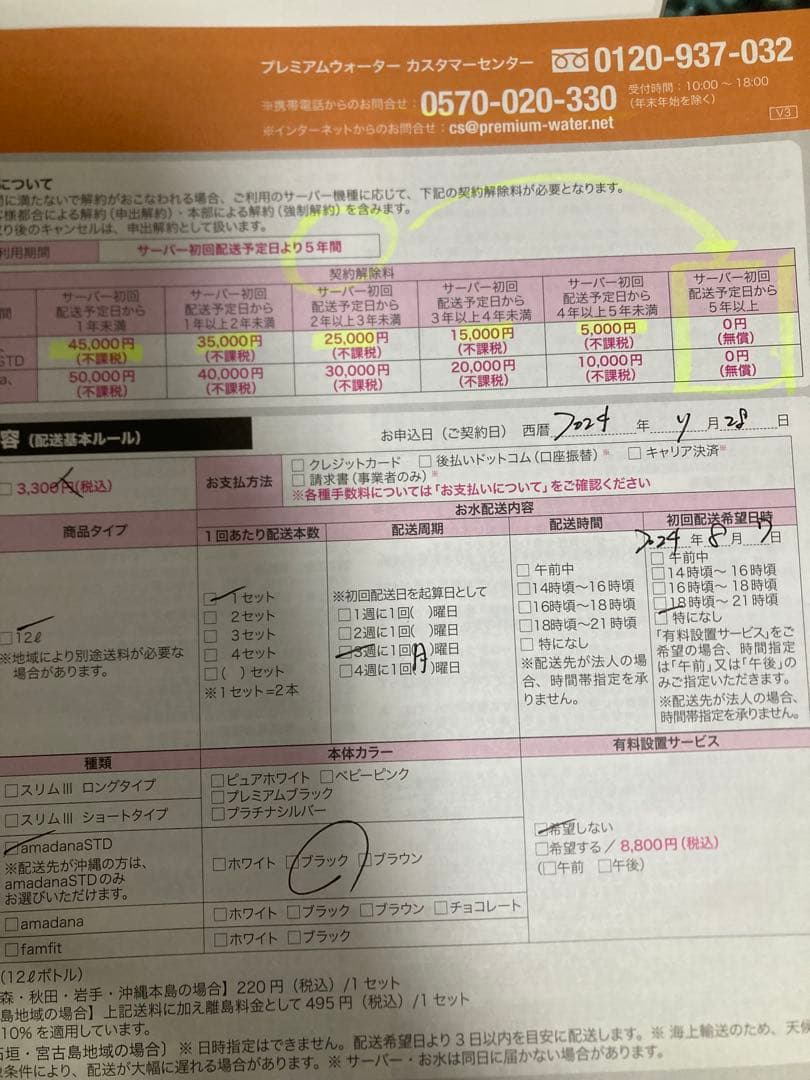 プレミアムウォーター カスタマーセンター 0120-937-032
※携帯電話からのお問合せ：0570-020-330 受付時間：10:00～18:00
（年末年始を除く）
※インターネットからのお問合せ：cs@premium-water.net
V3
について
に満たないで解約がおこなわれる場合、ご利用のサーバー機種に応じて、下記の契約解除料が必要となります。
客様都合による解約（申出解約）・本部による解約（強制解約）を含みます。
り後のキャンセルは、申出解約として扱います。
利用期間 サーバー初回配送予定日より5年間
契約解除料
間 サーバー初回配送予定日から1年未満 サーバー初回配送予定日から1年以上2年未満 サーバー初回配送予定日から2年以上3年未満 サーバー初回配送予定日から3年以上4年未満 サーバー初回配送予定日から4年以上5年未満 サーバー初回配送予定日から5年以上
STD 45,000円（不課税） 35,000円（不課税） 25,000円（不課税） 15,000円（不課税） 5,000円（不課税） 0円（無償）
a、 50,000円（不課税） 40,000円（不課税） 30,000円（不課税） 20,000円（不課税） 10,000円（不課税） 0円（無償）
容（配送基本ルール）
お申込日（ご契約日） 西暦 2024 年 月 28 日
□ 3,300円（税込）
お支払方法
□ クレジットカード □ 後払いドットコム（口座振替）※ □ キャリア決済※
□ 請求書（事業者のみ）※
※各種手数料については「お支払いについて」をご確認ください
お水配送内容
商品タイプ 1回あたり配送本数 配送周期 配送時間 初回配送希望日時
2024 年 8 月 日
□12ℓ
※地域により別途送料が必要な
場合があります。
□ 1セット
□ 2セット
□ 3セット
□ 4セット
□（ ）セット
※1セット=2本
※初回配送日を起算日として
□1週に1回（ ）曜日
□2週に1回（ ）曜日
□3週に1回（月）曜日
□4週に1回（ ）曜日
□ 午前中
□14時頃～16時頃
□16時頃～18時頃
□18時頃～21時頃
□ 特になし
※配送先が法人の場
合、時間帯指定を承
りません。
□ 午前中
□14時頃～16時頃
□16時頃～18時頃
□18時頃～21時頃
□ 特になし
「有料設置サービス」をご
希望の場合、時間指定
は「午前」又は「午後」の
みご指定いただきます。
※配送先が法人の場合、
時間帯指定を承りません。
種類 本体カラー 有料設置サービス
□スリムⅢ ロングタイプ
□スリムⅢ ショートタイプ
□ピュアホワイト □ベビーピンク
□プレミアムブラック
□プラチナシルバー
□amadanaSTD
※配送先が沖縄の方は、
amadanaSTDのみ
お選びいただけます。
□ホワイト □ブラック □ブラウン
□amadana □ホワイト □ブラック □ブラウン □チョコレート
□famfit □ホワイト □ブラック
□希望しない
□希望する／8,800円（税込）
（□午前 □午後）
（12ℓボトル）
森・秋田・岩手・沖縄本島の場合】220円（税込）/1セット
島地域の場合】上記送料に加え離島料金として495円（税込）/1セット
10%を適用しています。
石垣・宮古島地域の場合〕※ 日時指定はできません。配送希望日より3日以内を目安に配送します。※ 海上輸送のため、天候
象条件により、配送が大幅に遅れる場合があります。※ サーバー・お水は同日に届かない場合があります。